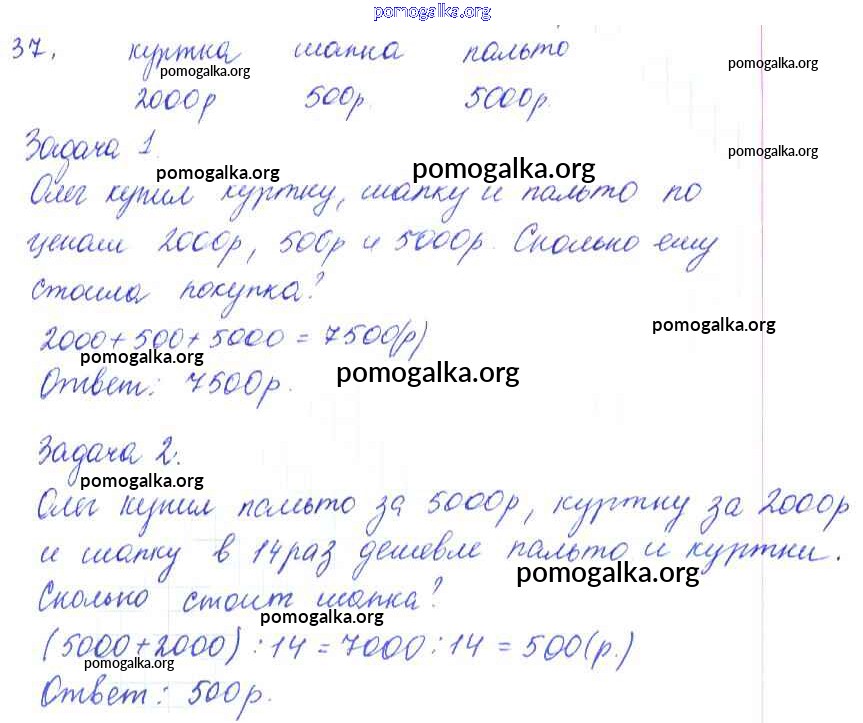 pomogalka.org
37. куртка шапка пальто
pomogalka.org pomogalka.org
2000р 500р. 5000р.
Задача 1.
pomogalka.org
pomogalka.org pomogalka.org
Олег купил куртку, шапку и пальто по
ценам 2000р, 500р и 5000р. Сколько ему
стоила покупка?
pomogalka.org
2000+500+5000=7500(р)
pomogalka.org
Ответ: 7500р.
pomogalka.org
Задача 2.
pomogalka.org
Олег купил пальто за 5000р, куртку за 2000р
и шапку в 14 раз дешевле пальто и куртки.
pomogalka.org
Сколько стоит шапка?
pomogalka.org
(5000+2000):14=7000:14=500(р.)
pomogalka.org
Ответ: 500р.